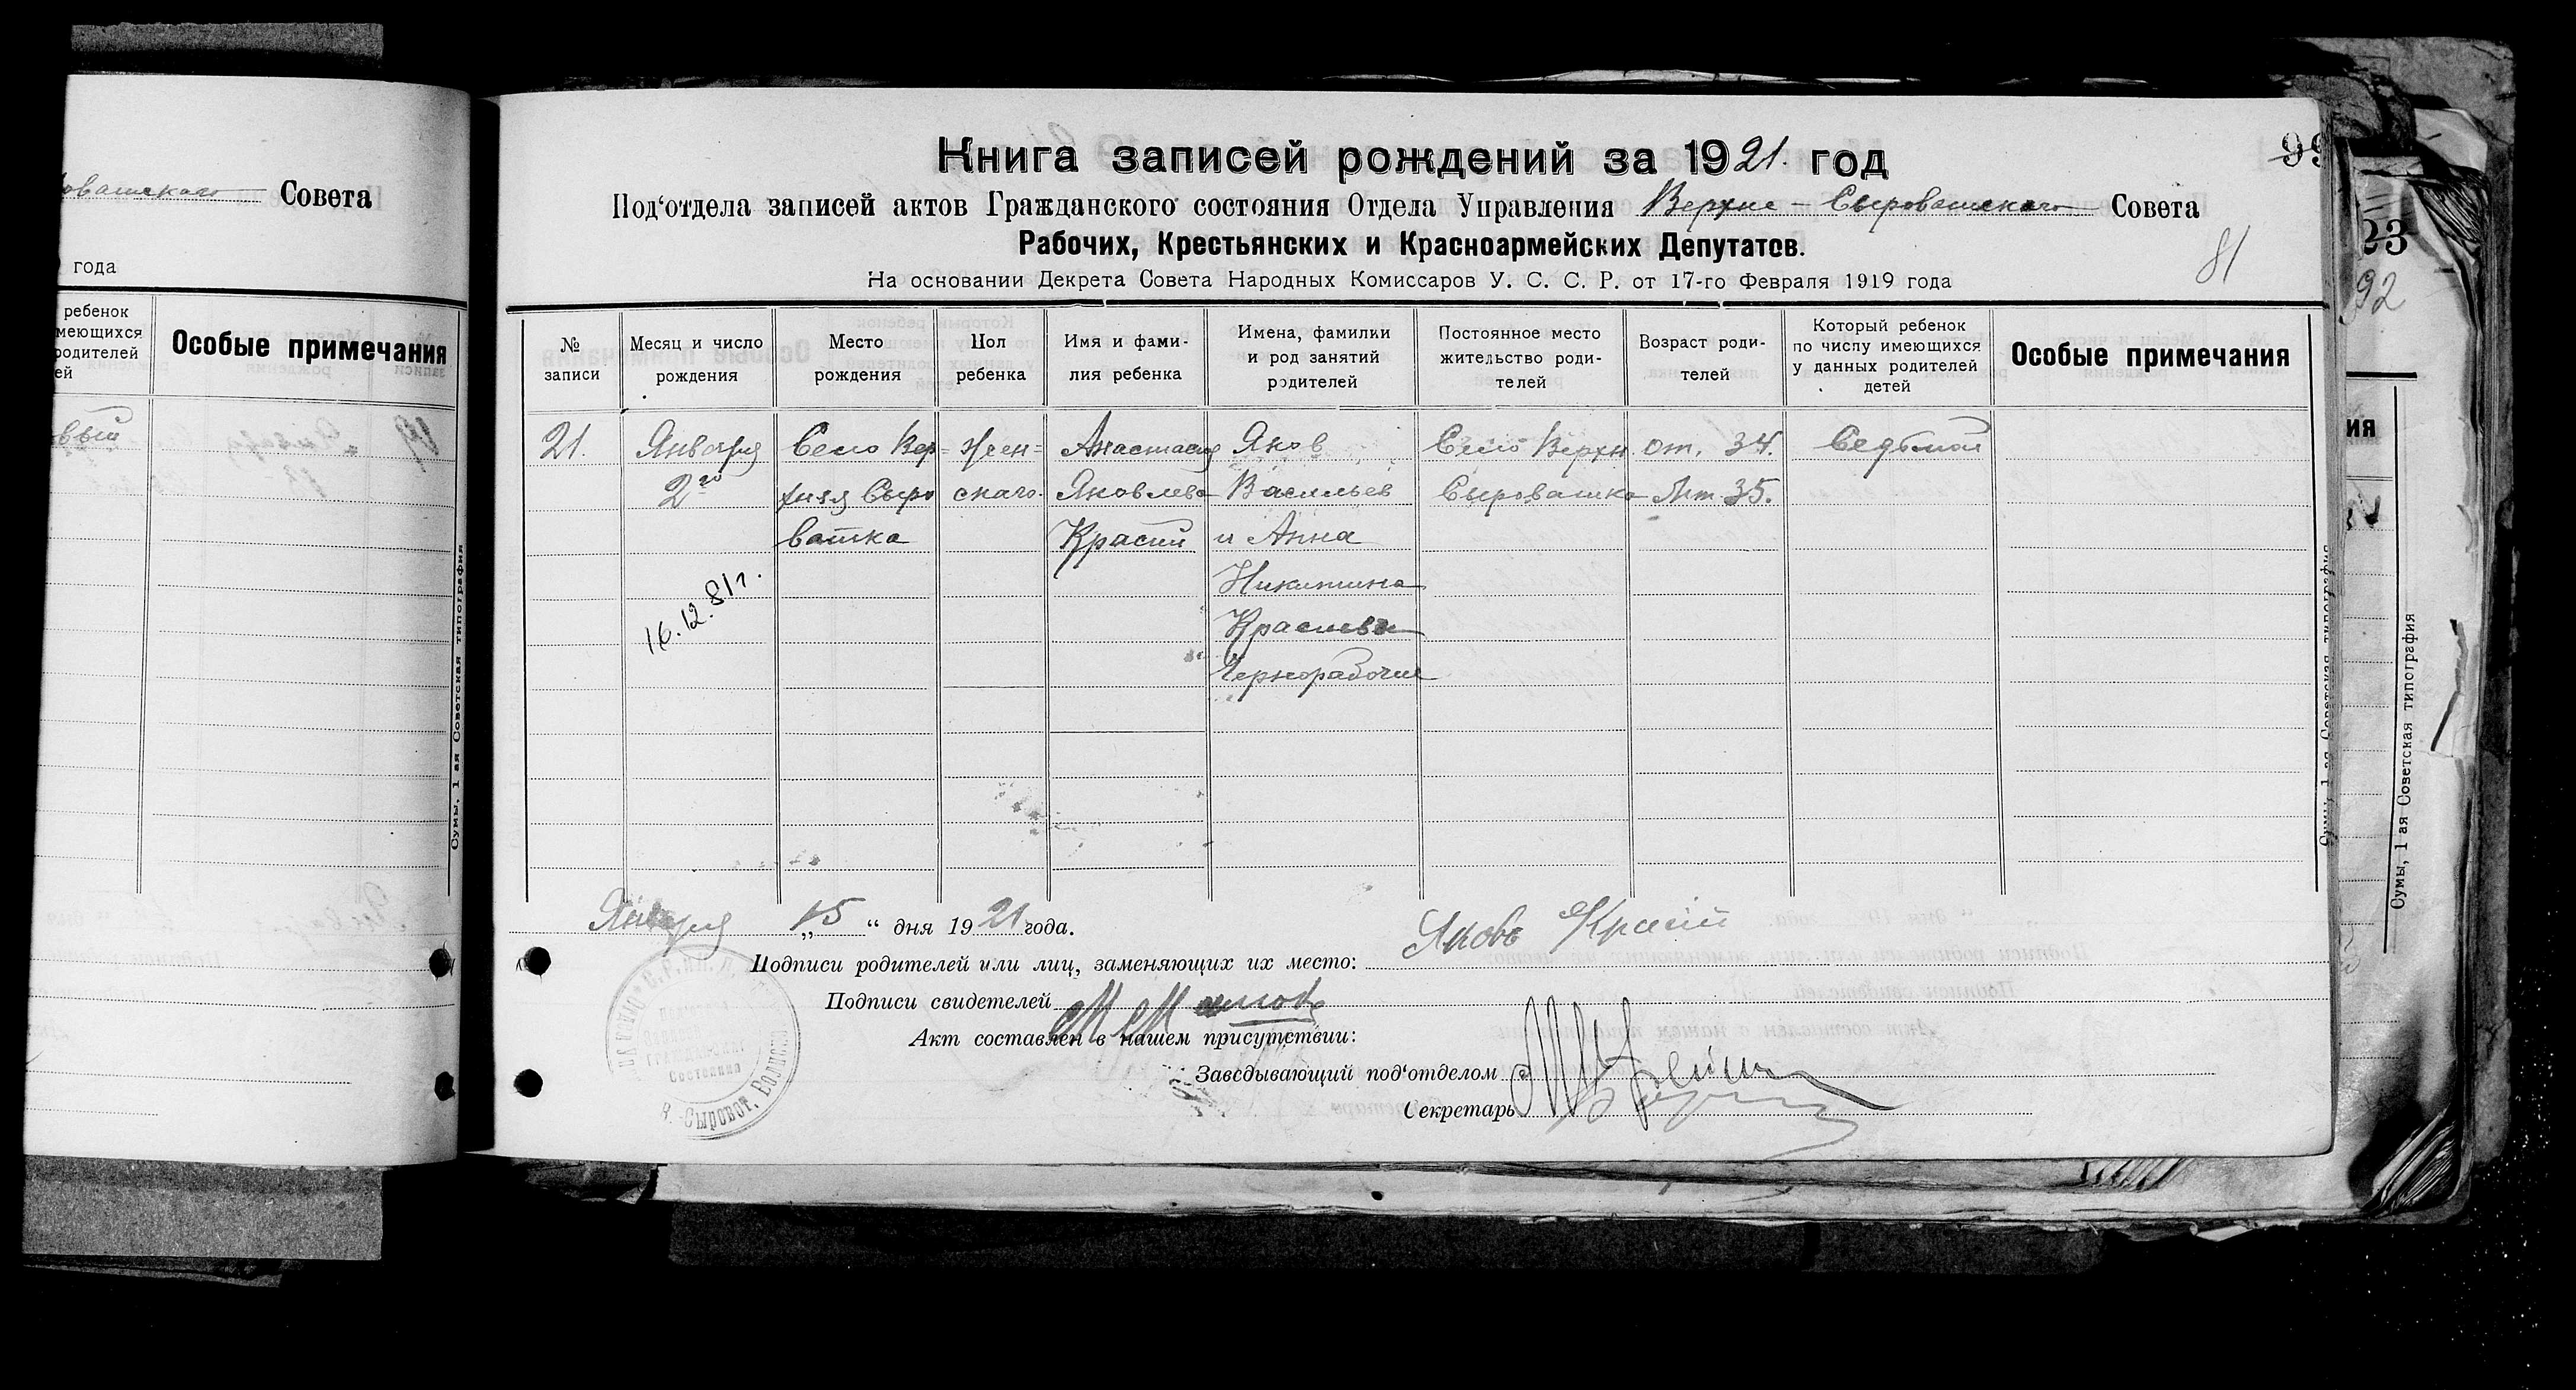 Книга записей рождений за 1921. год
99
Под‘отдела записей актов Гражданского состояния Отдела Управления Верхне - Сыроватского Совета
Рабочих, Крестьянских и Красноармейских Депутатов.
81
На основании Декрета Совета Народных Комиссаров У. С. С. Р. от 17-го Февраля 1919 года
№ записи
Месяц и число рождения
Место рождения
Пол ребенка
Имя и фамилия ребенка
Имена, фамилки и род занятий родителей
Постоянное место жительство родителей
Возраст родителей
Который ребенок по числу имеющихся у данных родителей детей
Особые примечания
21. Января Село Вер= жен= Анастасия Яков Село Верхн от. 34. Седьмой
2го хняя Сыро скаго. Яковлева Васильев Сыроватка Мт. 35.
ватка Красий и Анна
Никитина
16.12.81г. Красиева
Чернорабочие
Января „15“ дня 1921 года.
Подписи родителей или лиц, заменяющих их место: Яковъ Красій
Подписи свидетелей
Акт составлен в нашем присутствии:
Заведывающий под‘отделом
Секретарь
Состояния
Сыроват. Волисп
Совета
года
ребенок
меющихся
родителей
ей
Особые примечания
Сумы, 1 ая Советская типография
23
92
ия
Сумы, 1 ая Советская типография